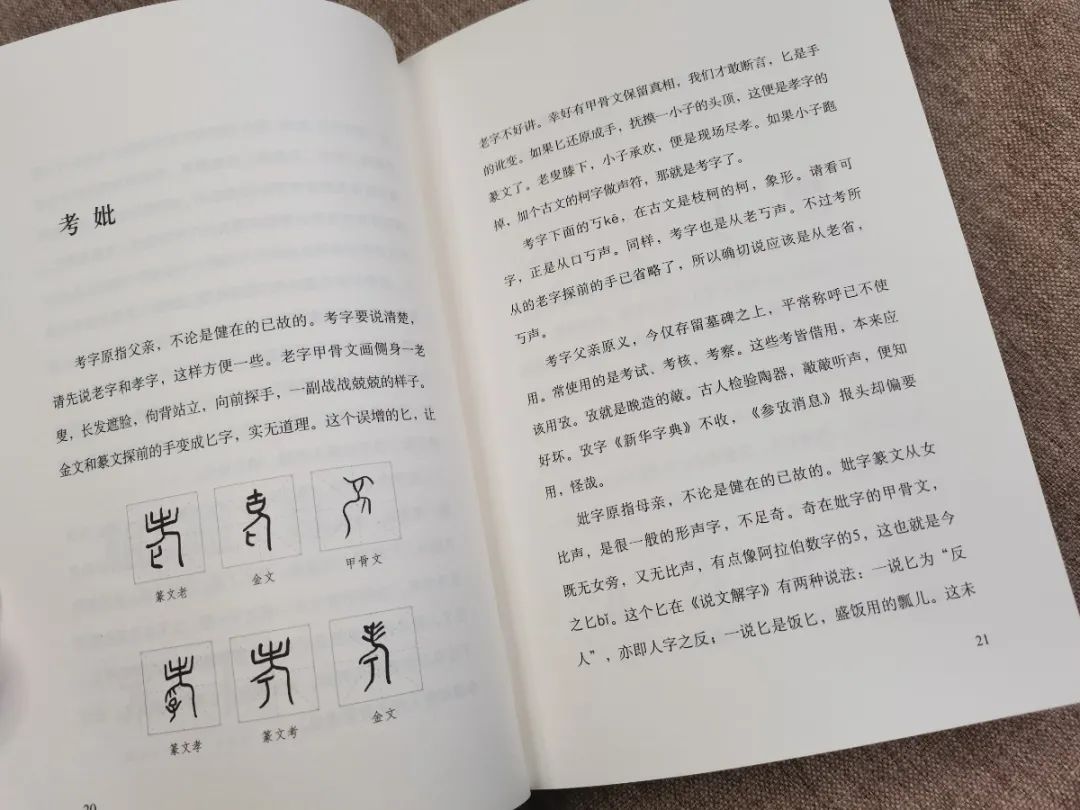 考 妣
考字原指父亲，不论是健在的已故的。考字要说清楚，
请先说老字和孝字，这样方便一些。老字甲骨文画侧身一老
叟，长发遮脸，佝背站立，向前探手，一副战战兢兢的样子。
金文和篆文探前的手变成匕字，实无道理。这个误增的匕，让
篆文老
金文
甲骨文
篆文孝
篆文考
金文
20
老字不好讲。幸好有甲骨文保留真相，我们才敢断言，匕是手
的讹变。如果匕还原成手，扶摸一小子的头顶，这便是孝字的
篆文了。老叟膝下，小子承欢，便是现场尽孝。如果小子跑
掉，加个古文的柯字做声符，那就是考字了。
考字下面的丂kē，在古文是枝柯的柯，象形。请看可
字，正是从口丂声。同样，考字也是从老丂声。不过考所
从的老字探前的手已省略了，所以确切说应该是从老省，
丂声。
考字父亲原义，今仅存留墓碑之上，平常称呼已不使
用。常使用的是考试、考核、考察。这些考皆借用，本来应
该用攷。攷就是晚造的敲。古人检验陶器，敲敲听声，便知
好坏。攷字《新华字典》不收，《参攷消息》报头却偏要
用，怪哉。
妣字原指母亲，不论是健在的已故的。妣字篆文从女
比声，是很一般的形声字，不足奇。奇在妣字的甲骨文，
既无女旁，又无比声，有点像阿拉伯数字的5，这也就是今
之匕bǐ。这个匕在《说文解字》有两种说法：一说匕为“反
人”，亦即人字之反；一说匕是饭匕，盛饭用的瓢儿。这未
21